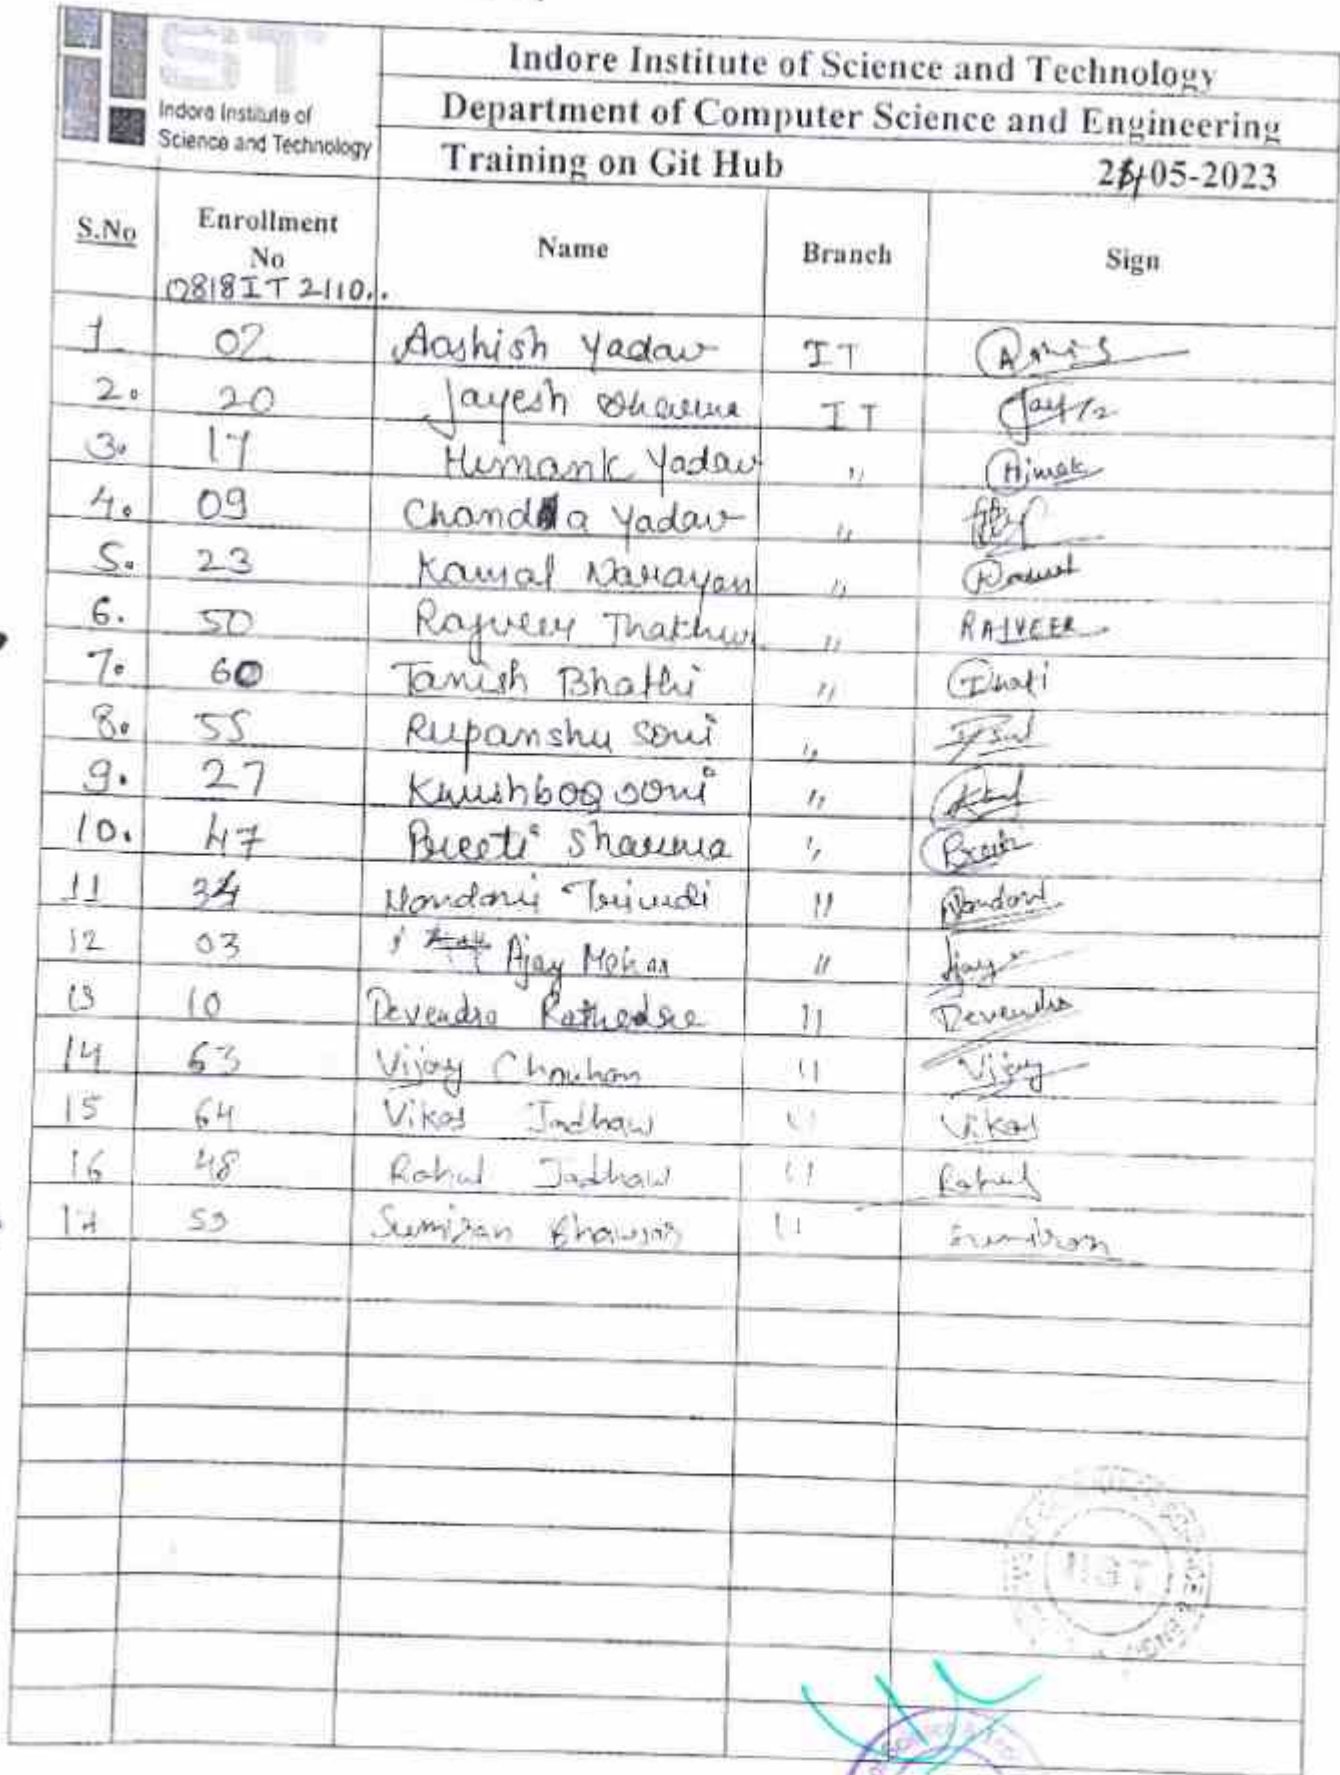 IIST
Indore Institute of
Science and Technology
Indore Institute of Science and Technology
Department of Computer Science and Engineering
Training on Git Hub 24-05-2023
S.No Enrollment No Name Branch Sign
0818IT2110..
1 02 Aashish Yadav IT
2. 20 Jayesh Sharma IT Jay
3. 17 Himank Yadav ,, Himak
4. 09 Chanda Yadav ,,
5. 23 Kamal Narayan ,, Kamal
6. 50 Rajveer Thakur ,, RAJVEER
7. 60 Tanish Bhathi ,,
8. 55 Rupanshu Soni ,,
9. 27 Khushboo Soni ,,
10. 47 Preeti Sharma ,, Preeti
11 34 Nandani Trivedi ,, Nandani
12 03 Ajay Mohan ,, Ajay
13 10 Devendra Rathedre ,, Devendra
14 63 Vijay Chouhan ,, Vijay
15 64 Vikas Jadhaw ,, Vikas
16 48 Rahul Jadhaw ,, Rahul
17 59 Sumiran Bhawsar ,, Sumiran
IIST